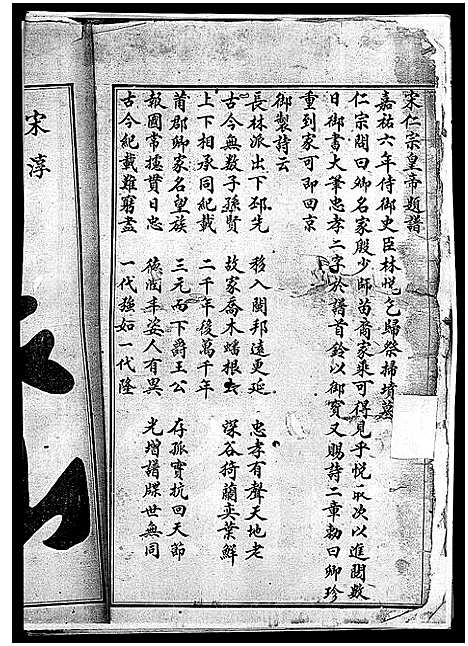 宋仁宗皇帝題譜
嘉祐六年侍御史臣林悅乞歸祭掃墳墓
仁宗閱曰卿名家殷少師苗裔家乘可得見乎悅取次以進閱數
日御書大筆忠孝二字於譜首鈐以御寶又賜詩二章勅曰卿珍
重到家可即回京
御製詩云
長林派出下邳先 移入閩邦遠更延 忠孝有聲天地老
古今無數子孫賢 故家喬木蟠根 深谷猗蘭奕葉鮮
上下相承同紀載 二千年後萬千年
莆郡卿家名望族 三元而下爵王公 存孤實抗回天節
報國常攄貫日忠 德潤丰姿人有異 光增譜牒世無同
古今紀載難窮盡 一代強如一代隆
宋淳